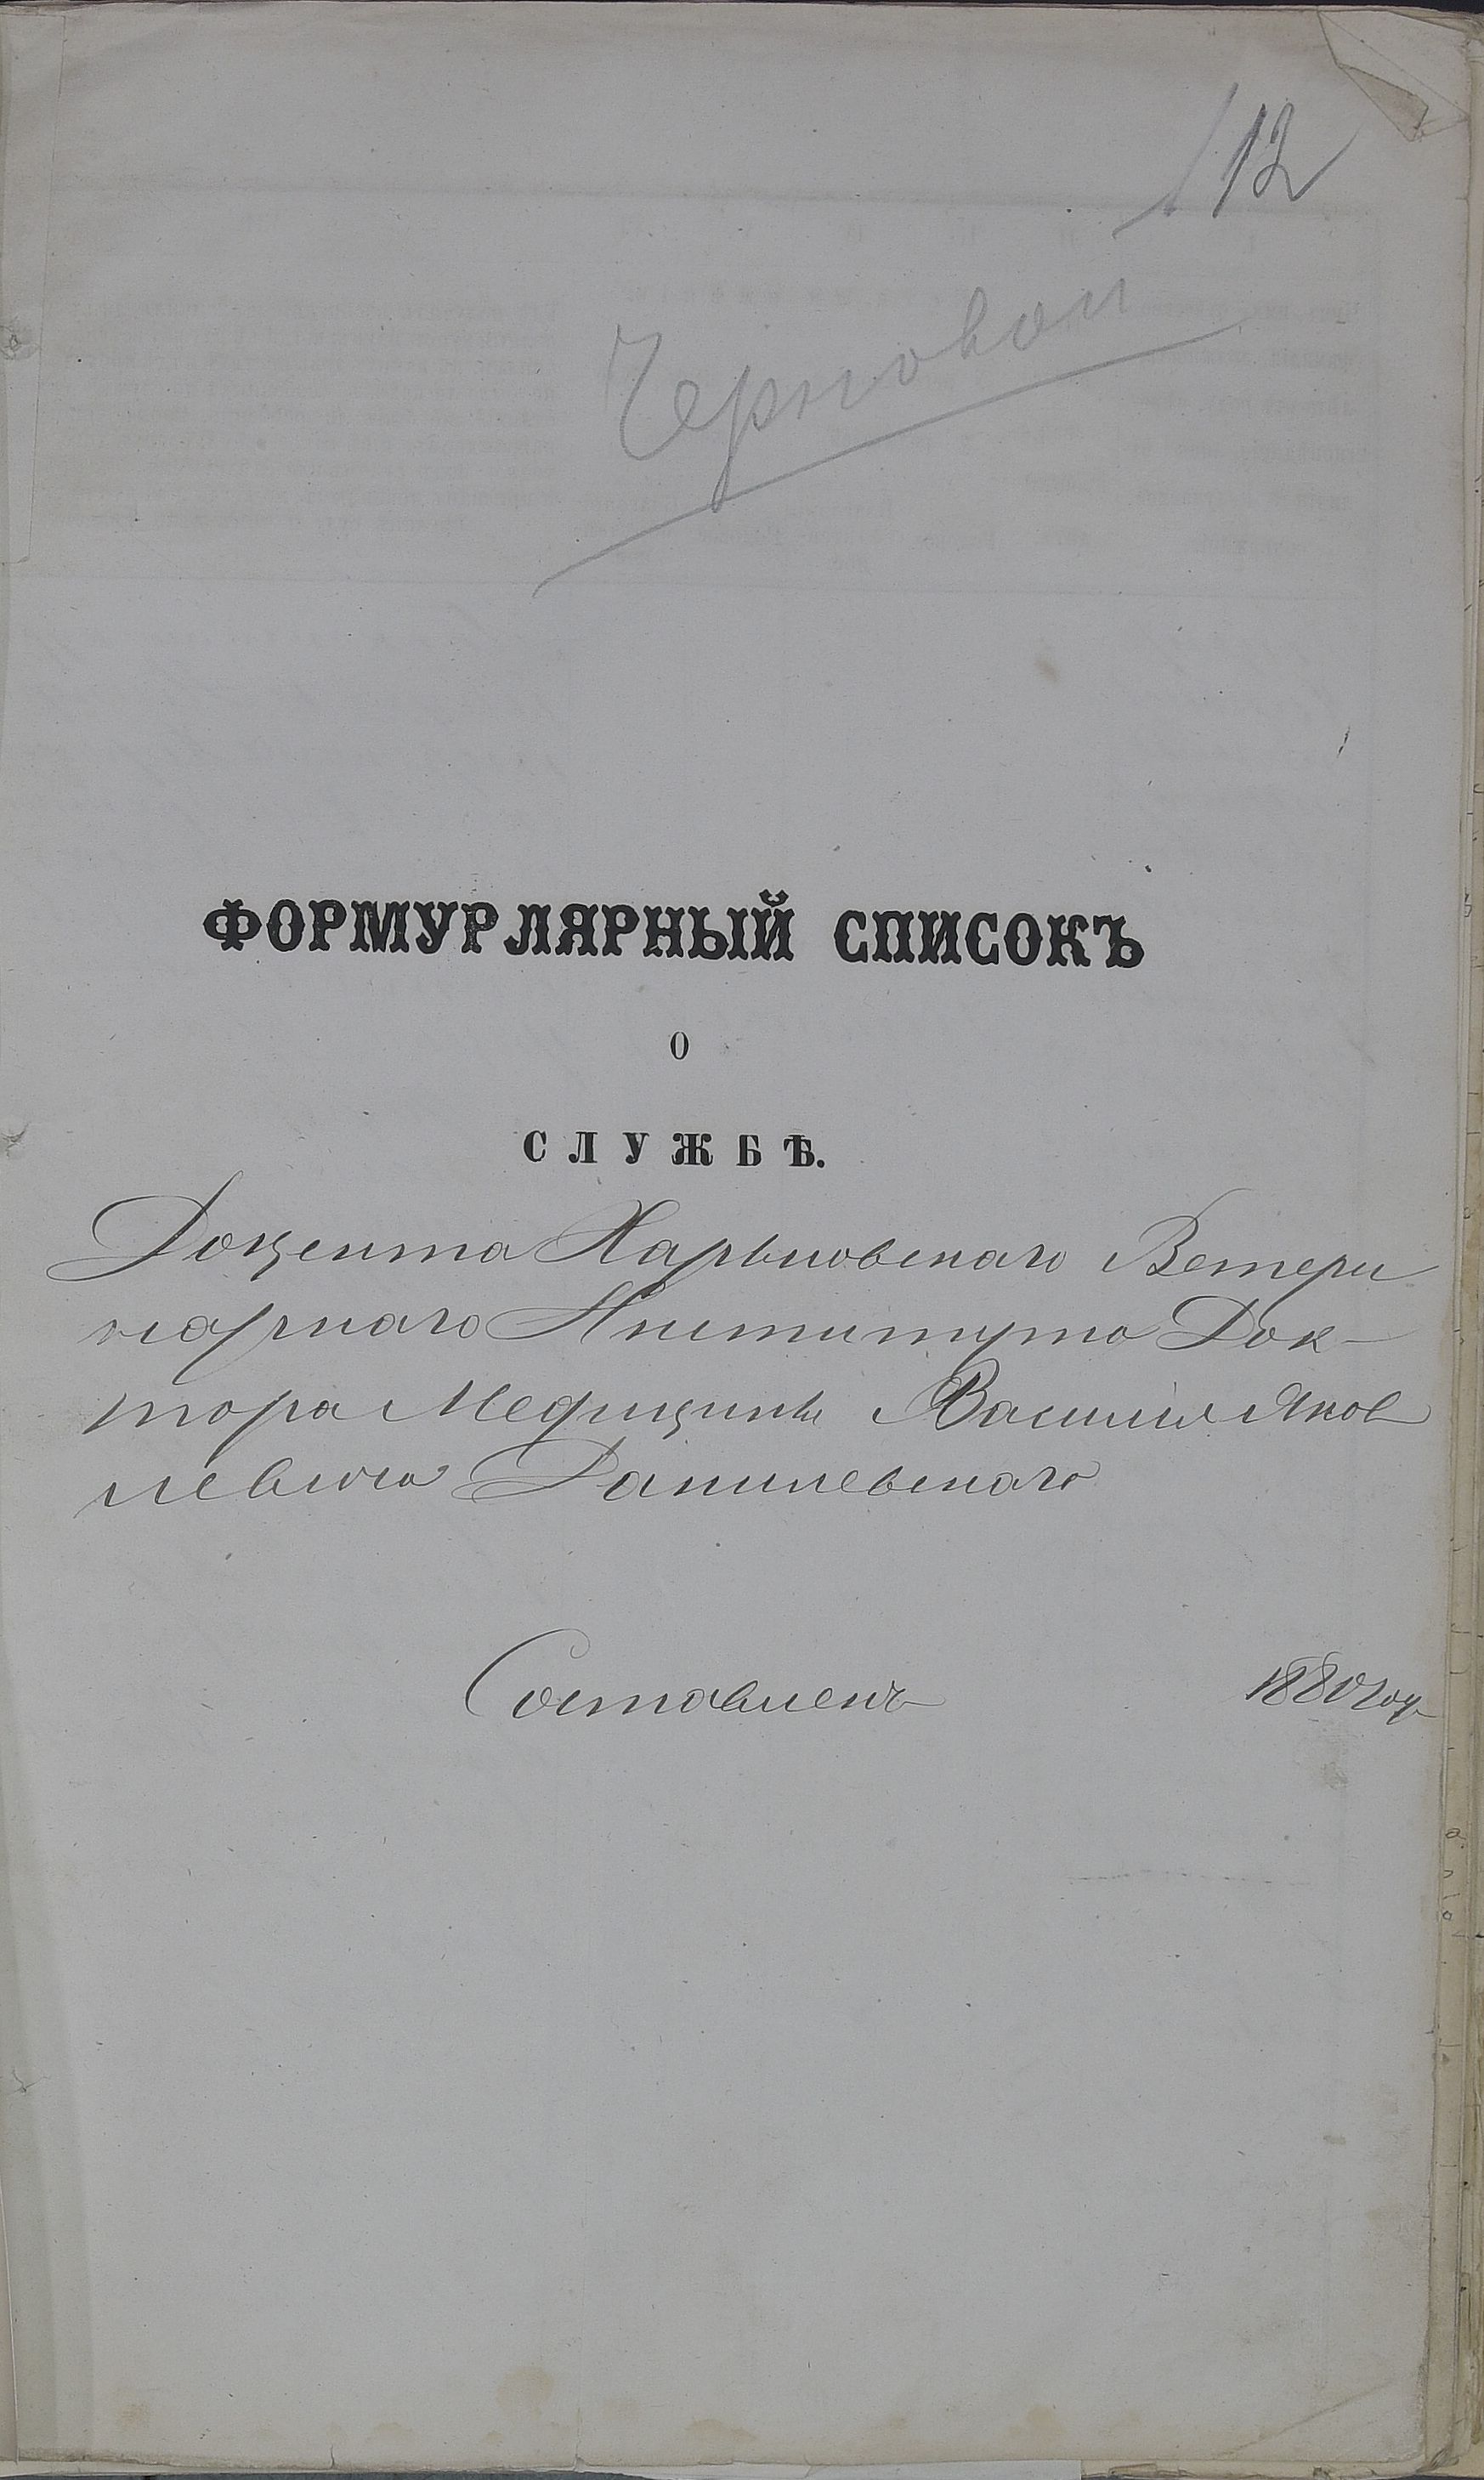 12
Черновой
ФОРМУРЛЯРНЫЙ СПИСОКЪ
О
СЛУЖБѢ.
Доцента Харьковскаго Ветери
нарнаго Института Док-
тора Медицины Василия Яков
левича Данилевскаго
Составленъ 1880 год